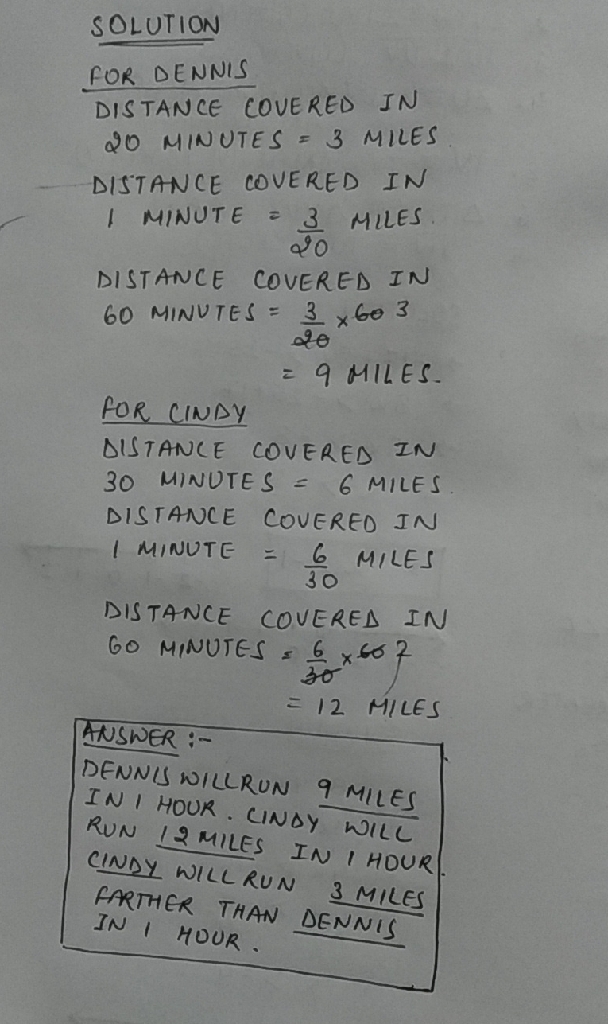 SOLUTION
FOR DENNIS
DISTANCE COVERED IN
20 MINUTES = 3 MILES
DISTANCE COVERED IN
1 MINUTE = 3/20 MILES.
DISTANCE COVERED IN
60 MINUTES = 3/20 × 60 3
= 9 MILES.
FOR CINDY
DISTANCE COVERED IN
30 MINUTES = 6 MILES.
DISTANCE COVERED IN
1 MINUTE = 6/30 MILES
DISTANCE COVERED IN
60 MINUTES = 6/30 × 60 2
= 12 MILES
ANSWER :-
DENNIS WILL RUN 9 MILES
IN 1 HOUR. CINDY WILL
RUN 12 MILES IN 1 HOUR.
CINDY WILL RUN 3 MILES
FARTHER THAN DENNIS
IN 1 HOUR.